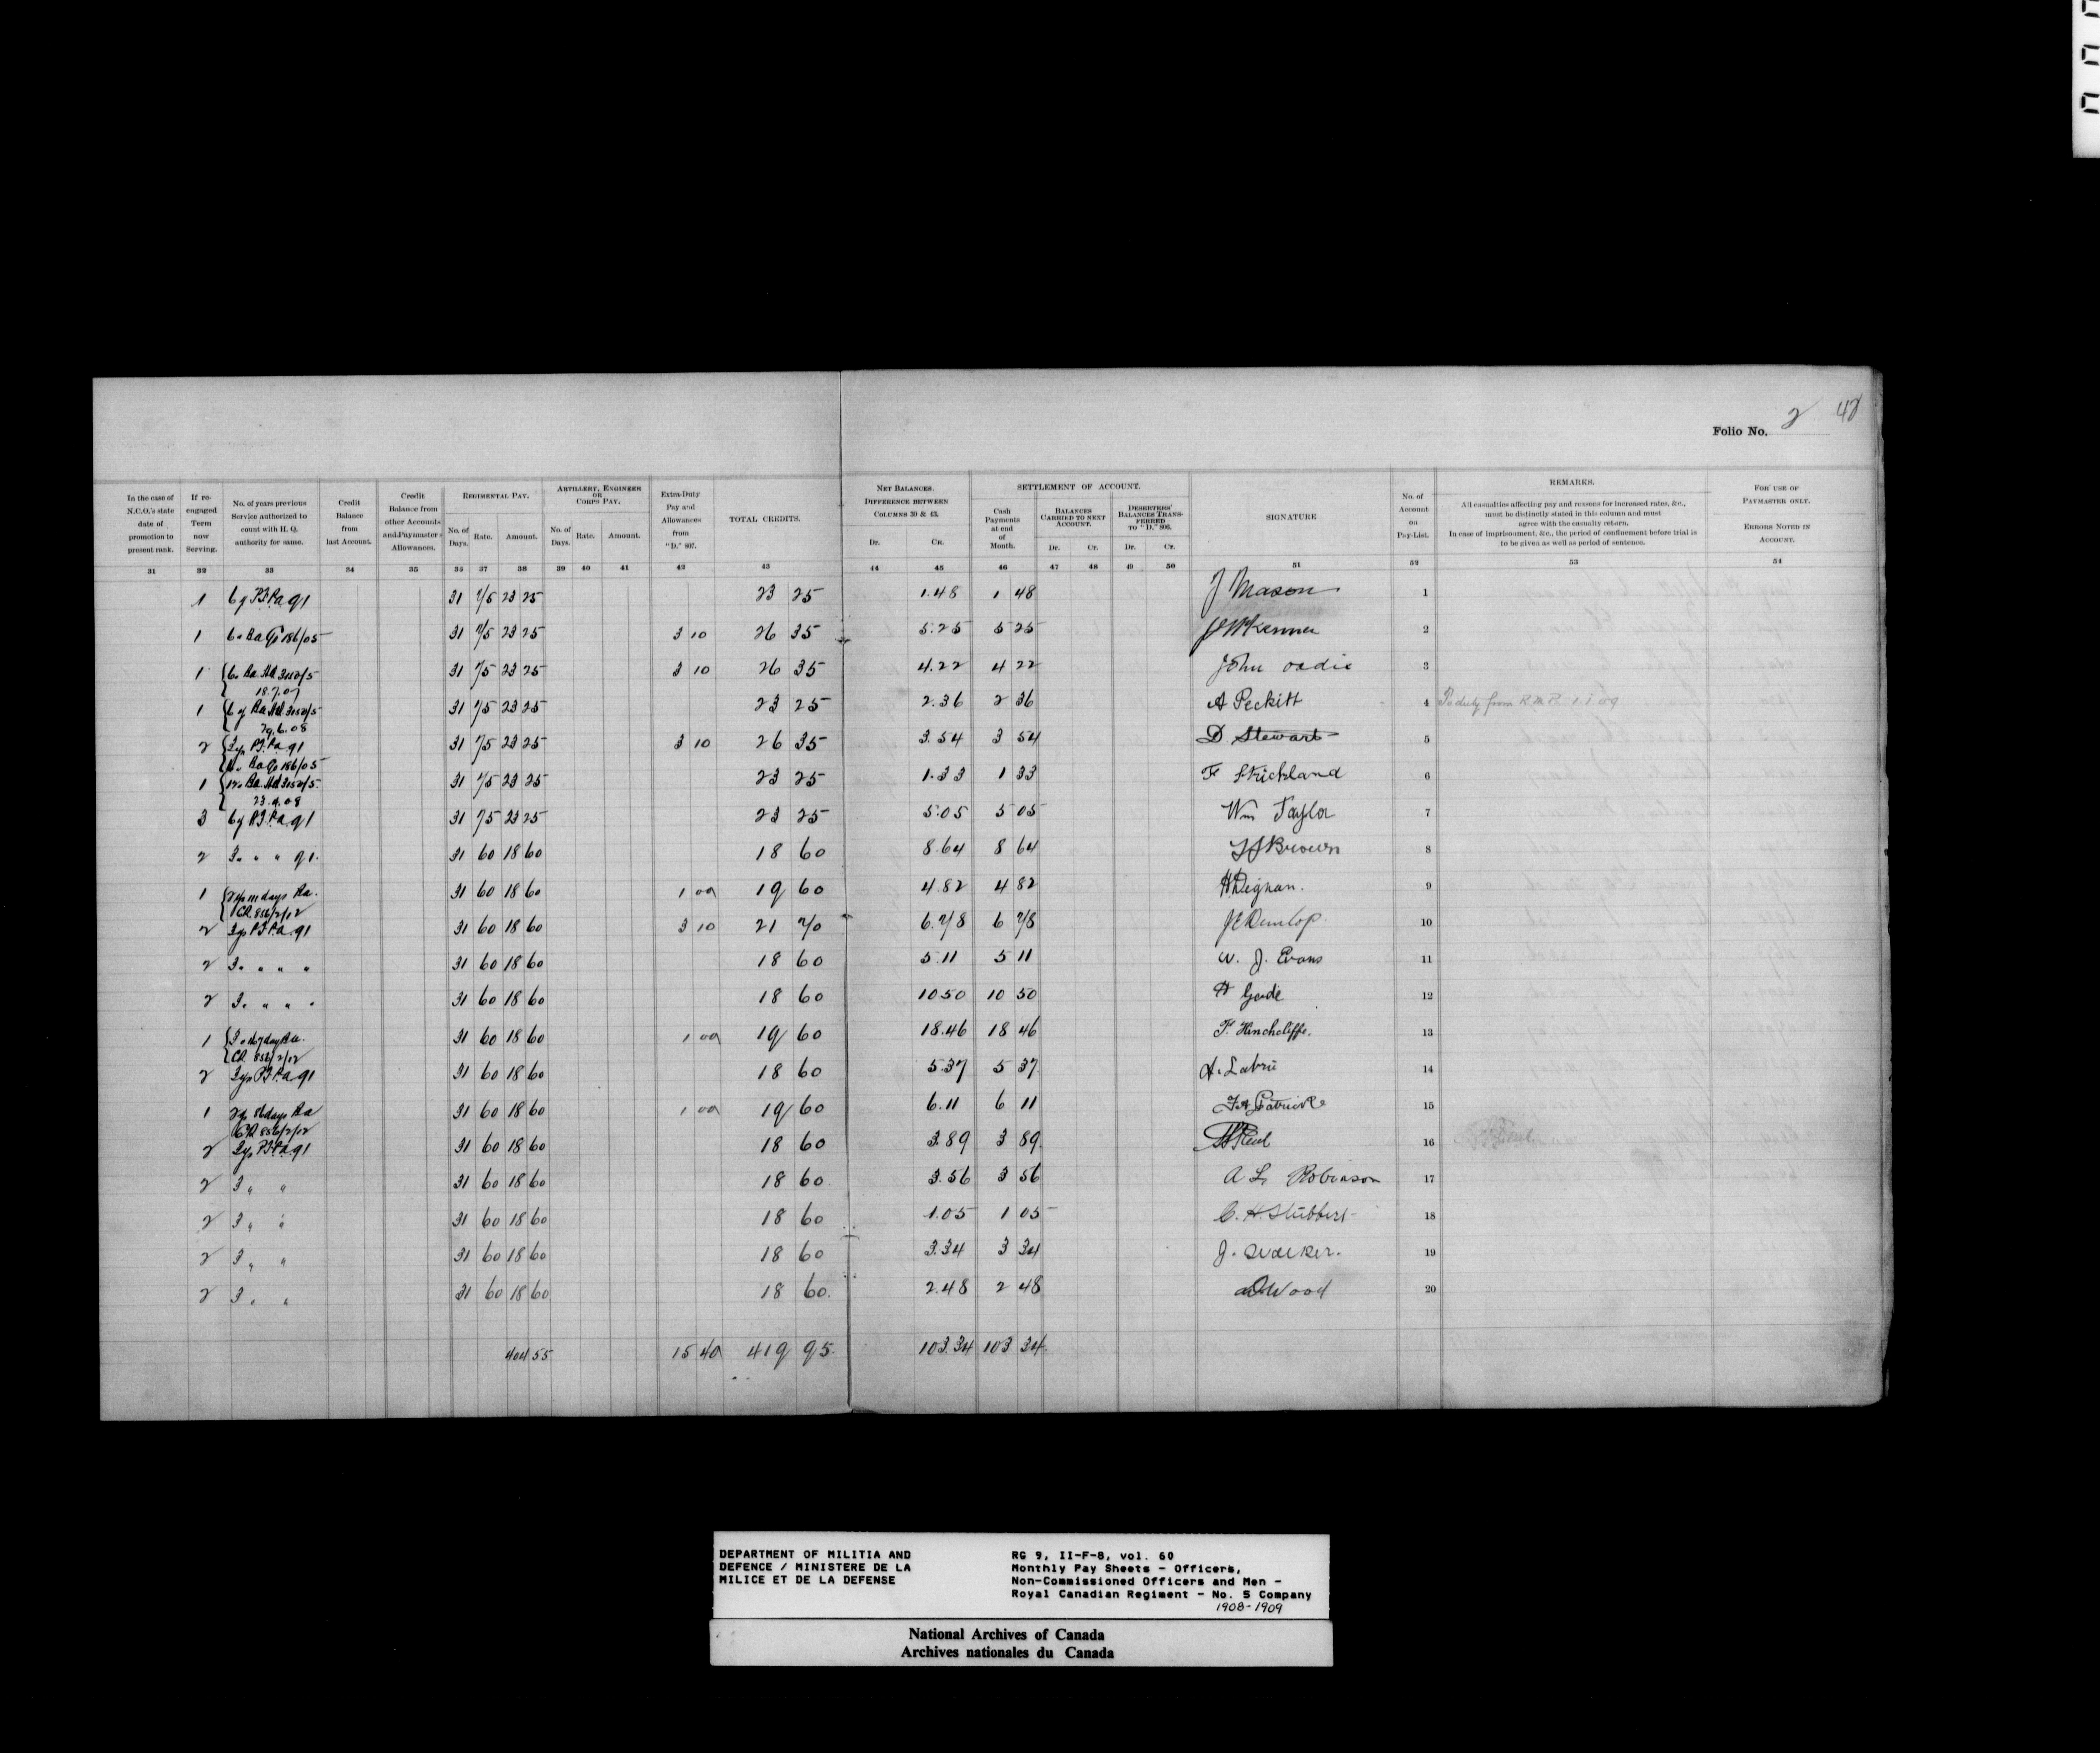 Folio No. 2 42
In the case of N.C.O.'s state date of promotion to present rank.
If re-engaged Term now Serving.
No. of years previous Service authorized to count with H. Q. authority for same.
Credit Balance from last Account.
Credit Balance from other Accounts and Paymasters Allowances.
REGIMENTAL PAY.
No. of Days. Rate. Amount.
ARTILLERY, ENGINEER OR CORPS PAY.
No. of Days. Rate. Amount.
Extra-Duty Pay and Allowances from "D." 807.
TOTAL CREDITS.
NET BALANCES. DIFFERENCE BETWEEN COLUMNS 30 & 43.
Dr. Cr.
SETTLEMENT OF ACCOUNT.
Cash Payments at end of Month.
BALANCES CARRIED TO NEXT ACCOUNT.
Dr. Cr.
DESERTERS' BALANCES TRANSFERRED TO "D." 806.
Dr. Cr.
SIGNATURE
No. of Account on Pay-List.
REMARKS.
All casualties affecting pay and reasons for increased rates, &c., must be distinctly stated in this column and must agree with the casualty return.
In case of imprisonment, &c., the period of confinement before trial is to be given as well as period of sentence.
FOR USE OF PAYMASTER ONLY.
ERRORS NOTED IN ACCOUNT.
31 32 33 34 35 36 37 38 39 40 41 42 43 44 45 46 47 48 49 50 51 52 53 54
1 31 75 23 25 23 25 1.48 1 48 J Mason 1
1 186/05 31 75 23 25 3 10 26 35 5.25 5 25 2
1 31 75 23 25 3 10 26 35 4.22 4 22 John 3
18.7.07
1 31 75 23 25 23 25 2.36 2 36 A Peckitt 4 To duty from R.M.R. 1.1.09
29.6.08
2 31 75 23 25 3 10 26 35 3.54 3 54 D Stewart 5
186/05
1 31 75 23 25 23 25 1.33 1 33 F Strickland 6
23.9.08
3 31 75 23 25 23 25 5.05 5 05 Wm Taylor 7
2 3 " " 91. 31 60 18 60 18 60 8.64 8 64 Brown 8
1 31 60 18 60 1 00 19 60 4.82 4 82 H Deignan. 9
2 31 60 18 60 3 10 21 70 6.78 6 78 J E Dunlop. 10
2 3 " " " 31 60 18 60 18 60 5.11 5 11 W. J. Evans 11
2 3 " " " 31 60 18 60 18 60 10.50 10 50 12
1 31 60 18 60 1 00 19 60 18.46 18 46 F. Hinchcliffe. 13
2 31 60 18 60 18 60 5.37 5 37 A. Labrie 14
1 31 60 18 60 1 00 19 60 6.11 6 11 15
2 31 60 18 60 18 60 3.89 3 89 16
2 3 " " 31 60 18 60 18 60 3.56 3 56 A L Robinson 17
2 3 " " 31 60 18 60 18 60 1.05 1 05 C. H. Stubbert 18
2 3 " " 31 60 18 60 18 60 3.34 3 34 J. Walker. 19
2 3 " " 31 60 18 60 18 60. 2.48 2 48 Wood 20
404 55 15 40 419 95. 103.34 103 34
DEPARTMENT OF MILITIA AND
DEFENCE / MINISTERE DE LA
MILICE ET DE LA DEFENSE
RG 9, II-F-8, vol. 60
Monthly Pay Sheets - Officers,
Non-Commissioned Officers and Men -
Royal Canadian Regiment - No. 5 Company
1908-1909
National Archives of Canada
Archives nationales du Canada